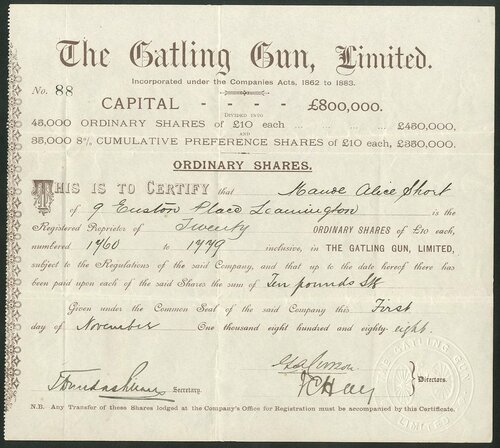 The Gatling Gun, Limited.
Incorporated under the Companies Acts, 1862 to 1883.
No. 88
CAPITAL - - - - £800,000.
DIVIDED INTO
45,000 ORDINARY SHARES of £10 each ... ... ... £450,000.
AND
35,000 8% CUMULATIVE PREFERENCE SHARES of £10 each, £350,000.
ORDINARY SHARES.
THIS IS TO CERTIFY that Maude Alice Short
of 9 Euston Place Leamington is the
Registered Proprietor of Twenty ORDINARY SHARES of £10 each,
numbered 1760 to 1779 inclusive, in THE GATLING GUN, LIMITED,
subject to the Regulations of the said Company, and that up to the date hereof there has
been paid upon each of the said Shares the sum of Ten pounds Stg
Given under the Common Seal of the said Company this First
day of November One thousand eight hundred and eighty-eight.
Secretary.
Directors.
THE GATLING GUN LIMITED
N.B. Any Transfer of these Shares lodged at the Company's Office for Registration must be accompanied by this Certificate.